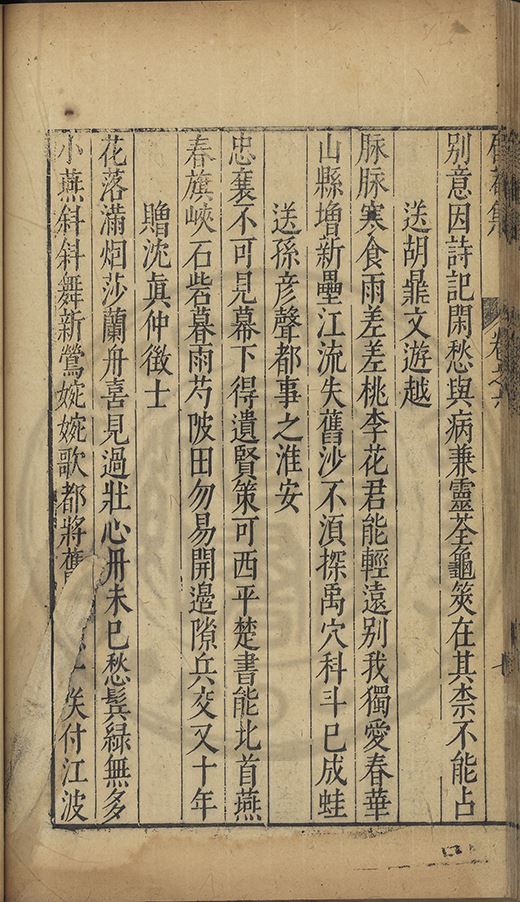 集 卷之六 七
別意因詩記閑愁與病兼靈荃龜筴在其柰不能占
送胡鼎文遊越
脉脉寒食雨差差桃李花君能輕遠別我獨愛春華
山縣增新壘江流失舊沙不湏探禹穴科斗已成蛙
送孫彥聲都事之淮安
忠襄不可見幕下得遺賢策可西平楚書能北首燕
春旗峽石砦暮雨芍陂田勿易開邊隙兵交又十年
贈沈眞仲徵士
花落滿烟莎蘭舟喜見過壯心丹未已愁鬂緑無多
小燕斜斜舞新鶯婉婉歌都將舊付江波